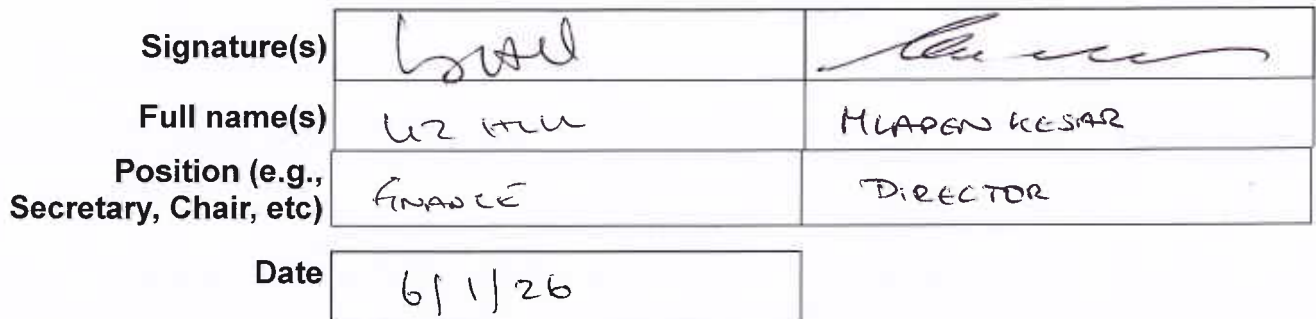 Signature(s)
Full name(s) LIZ HILL MLADEN KESAR
Position (e.g.,
Secretary, Chair, etc) FINANCE DIRECTOR
Date 6/1/26